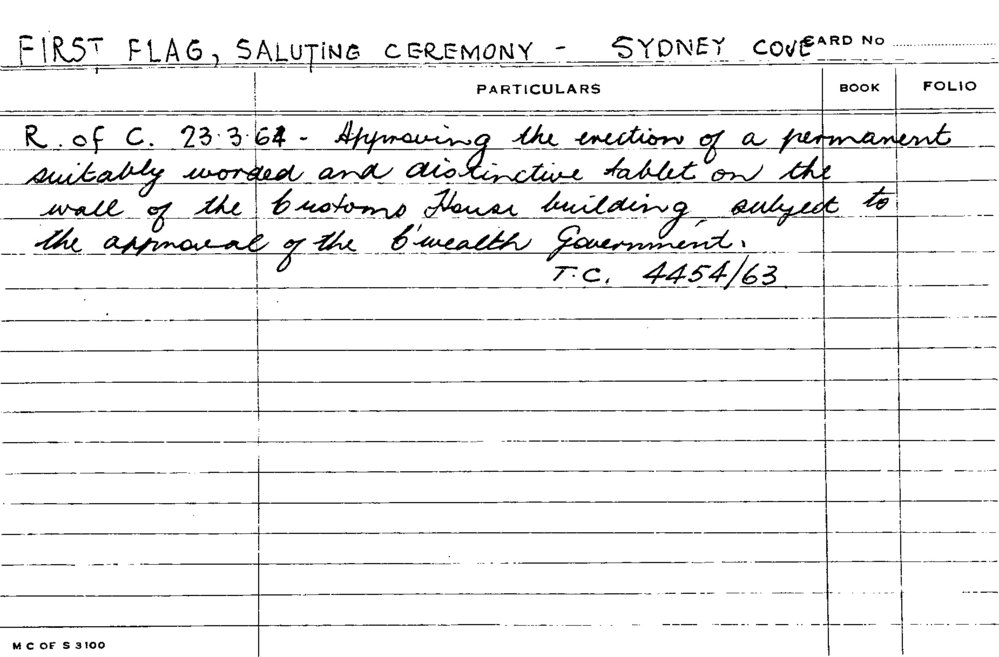 FIRST FLAG, SALUTING CEREMONY - SYDNEY COVE CARD No
PARTICULARS BOOK FOLIO
R. of C. 23·3·64 - Approving the erection of a permanent
suitably worded and distinctive tablet on the
wall of the Customs House building, subject to
the approval of the C'wealth Government.
T.C. 4454/63
M C OF S 3100